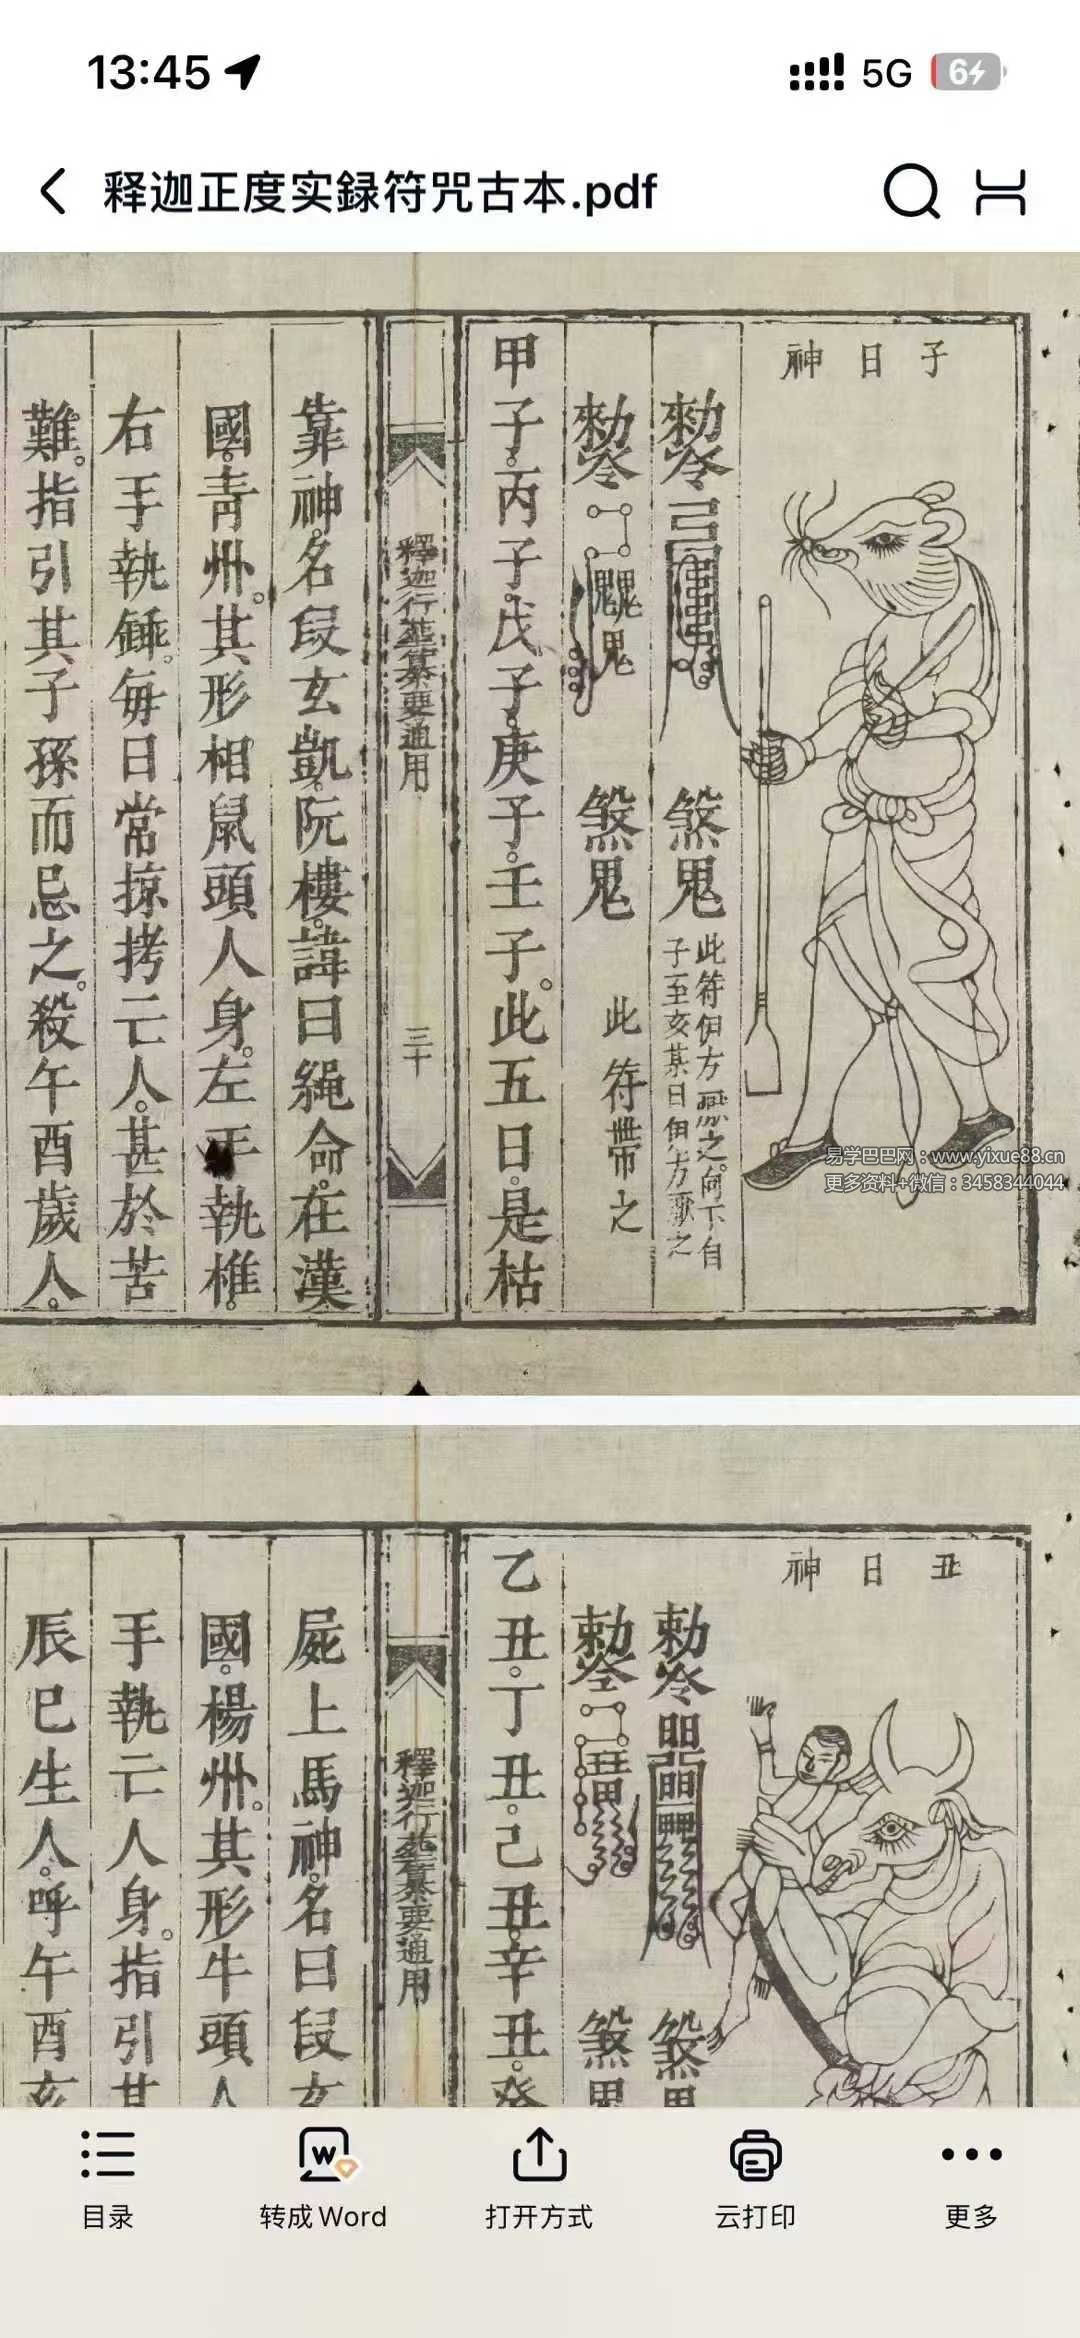 13:45
5G
6
释迦正度实録符咒古本.pdf
子日神
煞鬼
此符但方
子至亥某日
煞鬼
此符帶之
甲子。丙子。戊子。庚子。壬子。此五日。是枯
釋迦行
纂要通用
三十
靠神。名段玄凱。阮樓。諱曰繩命。在漢
國。青州。其形相鼠頭人身。左手執椎。
右手執錘。每日常掠拷亡人。甚於苦
難。指引其子孫而忌之。殺午酉歲人。
易学巴巴网：www.yixue88.cn
更多资料+微信：3458344044
丑日神
煞
煞
乙丑。丁丑。己丑。辛丑。癸
釋迦行
纂要通用
屍上馬神。名曰段玄
國。楊州。其形牛頭人
手執亡人身。指引其
辰巳生人。呼午酉亥
目录
转成Word
打开方式
云打印
更多